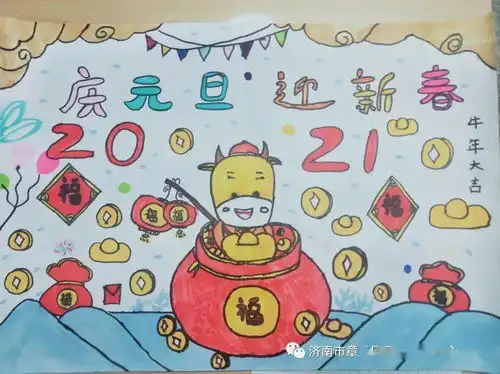 庆元旦 迎新春
20 21
牛年大吉
福
福
福 福
福
福
福
济南市章